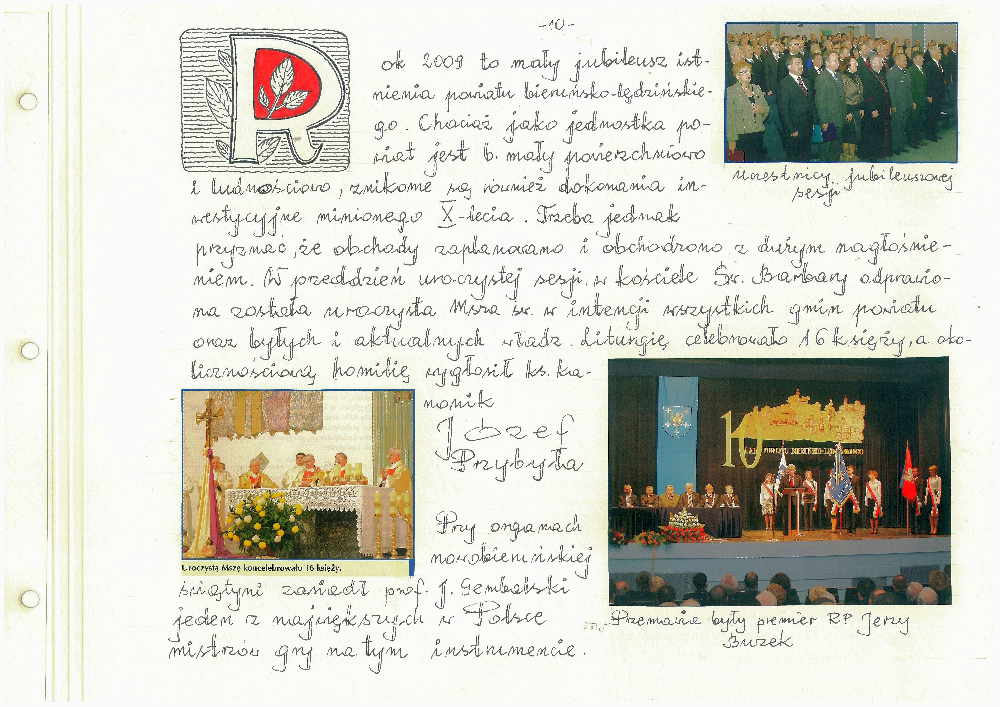 -10-
Rok 2009 to mały jubileusz ist-
nienia powiatu bieruńsko-lędzińskie-
go. Chociaż jako jednostka po-
wiat jest b. mały powierzchniowo
i ludnościowo, znikome są również dokonania in-
westycyjne minionego X-lecia. Trzeba jednak
przyznać, że obchody zaplanowano i obchodzono z dużym nagłośnie-
niem. W przeddzień uroczystej sesji w kościele Św. Barbary odprawio-
na została uroczysta Msza św. w intencji wszystkich gmin powiatu
oraz byłych i aktualnych władz. Liturgię celebrowało 16 księży, a oko-
licznościową homilię wygłosił ks. ka-
nonik
Józef
Przybyła
Przy organach
nowobieruńskiej
świątyni zasiadł prof. J. Gembalski
jeden z największych w Polsce
mistrzów gry na tym instrumencie.
Uczestnicy jubileuszowej
sesji
Uroczystą Mszę koncelebrowało 16 księży.
10
LAT POWIATU BIERUŃSKO-LĘDZIŃSKIEGO
Przemawia były premier RP Jerzy
Buzek